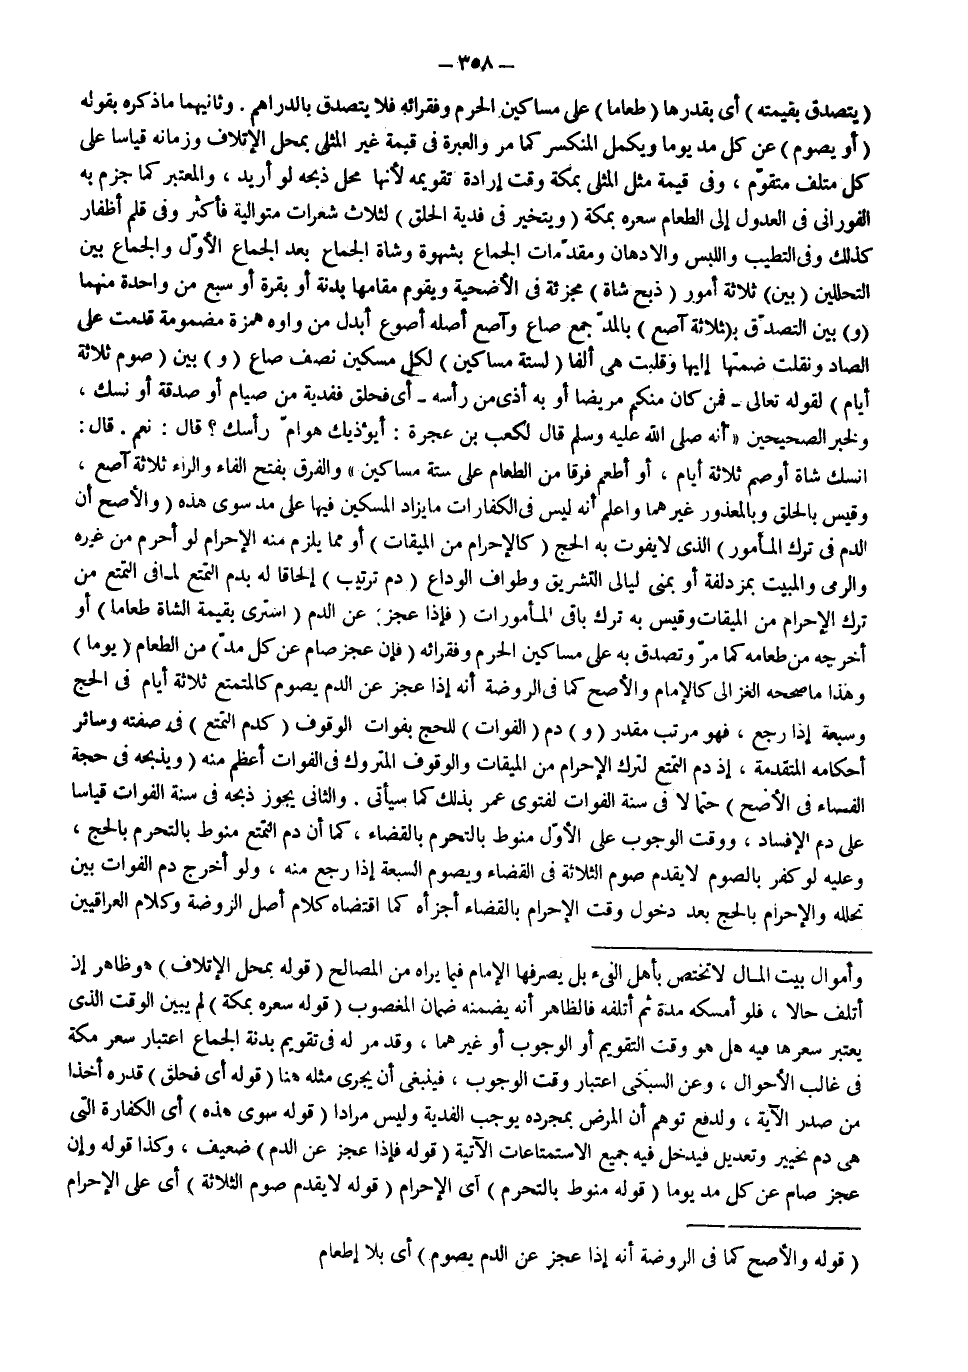 — ٣٥٨ —
( يتصدق بقيمته ) أى بقدرها ( طعاما ) على مساكين الحرم وفقرائه فلا يتصدق بالدراهم . وثانيهما ماذكره بقوله
( أو يصوم ) عن كل مد يوما ويكمل المنكسر كما مر والعبرة فى قيمة غير المثلى بمحل الإتلاف وزمانه قياسا على
كل متلف متقوّم ، وفى قيمة مثل المثلى بمكة وقت إرادة تقويمه لأنها محل ذبحه لو أريد ، والمعتبر كما جزم به
الفورانى فى العدول إلى الطعام سعره بمكة ( ويتخير فى فدية الحلق ) لثلاث شعرات متوالية فأكثر وفى قلم أظفار
كذلك وفى التطيب واللبس والادهان ومقدّمات الجماع بشهوة وشاة الجماع بعد الجماع الأوّل والجماع بين
التحللين ( بين ) ثلاثة أمور ( ذبح شاة ) مجزئة فى الأضحية ويقوم مقامها بدنة أو بقرة أو سبع من واحدة منهما
( و ) بين التصدّق ب( ثلاثة آصع ) بالمدّ جمع صاع وآصع أصله أصوع أبدل من واوه همزة مضمومة قدمت على
الصاد ونقلت ضمتها إليها وقلبت هى ألفا ( لستة مساكين ) لكل مسكين نصف صاع ( و ) بين ( صوم ثلاثة
أيام ) لقوله تعالى ـ فمن كان منكم مريضا أو به أذى من رأسه ـ أى فحلق ففدية من صيام أو صدقة أو نسك ،
ولخبر الصحيحين « أنه صلى الله عليه وسلم قال لكعب بن عجرة : أيؤذيك هوامّ رأسك ؟ قال : نعم . قال :
انسك شاة أو صم ثلاثة أيام ، أو أطعم فرقا من الطعام على ستة مساكين » والفرق بفتح الفاء والراء ثلاثة آصع ،
وقيس بالحلق وبالمعذور غيرهما واعلم أنه ليس فى الكفارات مايزاد المسكين فيها على مد سوى هذه ( والأصح أن
الدم فى ترك المـأمور ) الذى لايفوت به الحج ( كالإحرام من الميقات ) أو مما يلزم منه الإحرام لو أحرم من غيره
والرمى والمبيت بمزدلفة أو بمنى ليالى التشريق وطواف الوداع ( دم ترتيب ) إلحاقا له بدم التمتع لمـافى التمتع من
ترك الإحرام من الميقات وقيس به ترك باقى المـأمورات ( فإذا عجز ) عن الدم ( اشترى بقيمة الشاة طعاما ) أو
أخرجه من طعامه كما مرّ وتصدق به على مساكين الحرم وفقرائه ( فإن عجز صام عن كل مدّ ) من الطعام ( يوما )
وهذا ماصححه الغزالى كالإمام والأصح كما فى الروضة أنه إذا عجز عن الدم يصوم كالمتمتع ثلاثة أيام فى الحج
وسبعة إذا رجع ، فهو مرتب مقدر ( و ) دم ( الفوات ) للحج بفوات الوقوف ( كدم التمتع ) فى صفته وسائر
أحكامه المتقدمة ، إذ دم التمتع لترك الإحرام من الميقات والوقوف المتروك فى الفوات أعظم منه ( ويذبحه فى حجة
القضاء فى الأصح ) حتما لا فى سنة الفوات لفتوى عمر بذلك كما سيأتى . والثانى يجوز ذبحه فى سنة الفوات قياسا
على دم الإفساد ، ووقت الوجوب على الأوّل منوط بالتحرم بالقضاء ، كما أن دم التمتع منوط بالتحرم بالحج ،
وعليه لو كفر بالصوم لايقدم صوم الثلاثة فى القضاء ويصوم السبعة إذا رجع منه ، ولو أخرج دم الفوات بين
تحلله والإحرام بالحج بعد دخول وقت الإحرام بالقضاء أجزأه كما اقتضاه كلام أصل الروضة وكلام العراقيين
وأموال بيت المـال لاتختص بأهل الفىء بل يصرفها الإمام فيما يراه من المصالح ( قوله بمحل الإتلاف ) هوظاهر إن
أتلف حالا ، فلو أمسكه مدة ثم أتلفه فالظاهر أنه يضمنه ضمان المغصوب ( قوله سعره بمكة ) لم يبين الوقت الذى
يعتبر سعرها فيه هل هو وقت التقويم أو الوجوب أو غيرهما ، وقد مر له فى تقويم بدنة الجماع اعتبار سعر مكة
فى غالب الأحوال ، وعن السبكى اعتبار وقت الوجوب ، فينبغى أن يجرى مثله هنا ( قوله أى فحلق ) قدره أخذا
من صدر الآية ، ولدفع توهم أن المرض بمجرده يوجب الفدية وليس مرادا ( قوله سوى هذه ) أى الكفارة التى
هى دم تخيير وتعديل فيدخل فيه جميع الاستمتاعات الآتية ( قوله فإذا عجز عن الدم ) ضعيف ، وكذا قوله وإن
عجز صام عن كل مد يوما ( قوله منوط بالتحرم ) أى الإحرام ( قوله لايقدم صوم الثلاثة ) أى على الإحرام
( قوله والأصح كما فى الروضة أنه إذا عجز عن الدم يصوم ) أى بلا إطعام